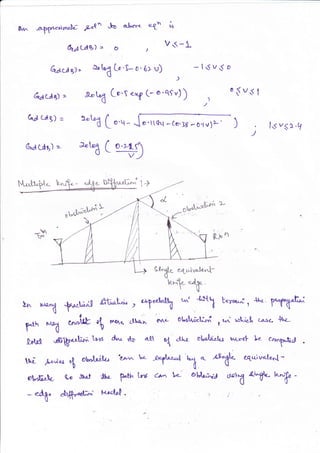 An approximate solⁿ to above eqⁿ is
Gd(dB) = 0 , V ≤ -1
Gd(dB) = 20 log (0.5 - 0.62 v) -1 ≤ v ≤ 0
Gd(dB) = 20 log (0.5 exp (-0.95v)) , 0 ≤ v ≤ 1
Gd (dB) = 20 log (0.4 - √0.1184 - (0.38 - 0.1v)² ) ; 1 ≤ v ≤ 2.4
Gd(dB) = 20 log (0.225/v)
Multiple knife - edge Diffraction :→
obstruction 1
α
obstruction 2
Txⁿ
Rxⁿ
Single equivalent
knife edge.
In many practical situation, especially in hilly terrain, the propagation
path may consist of more than one obstruction, in which case the
total diffraction loss due to all of the obstacles must be computed.
the series of obstacles can be replaced by a single equivalent -
obstacle so that the path loss can be obtained using single knife -
- edge diffraction Model.